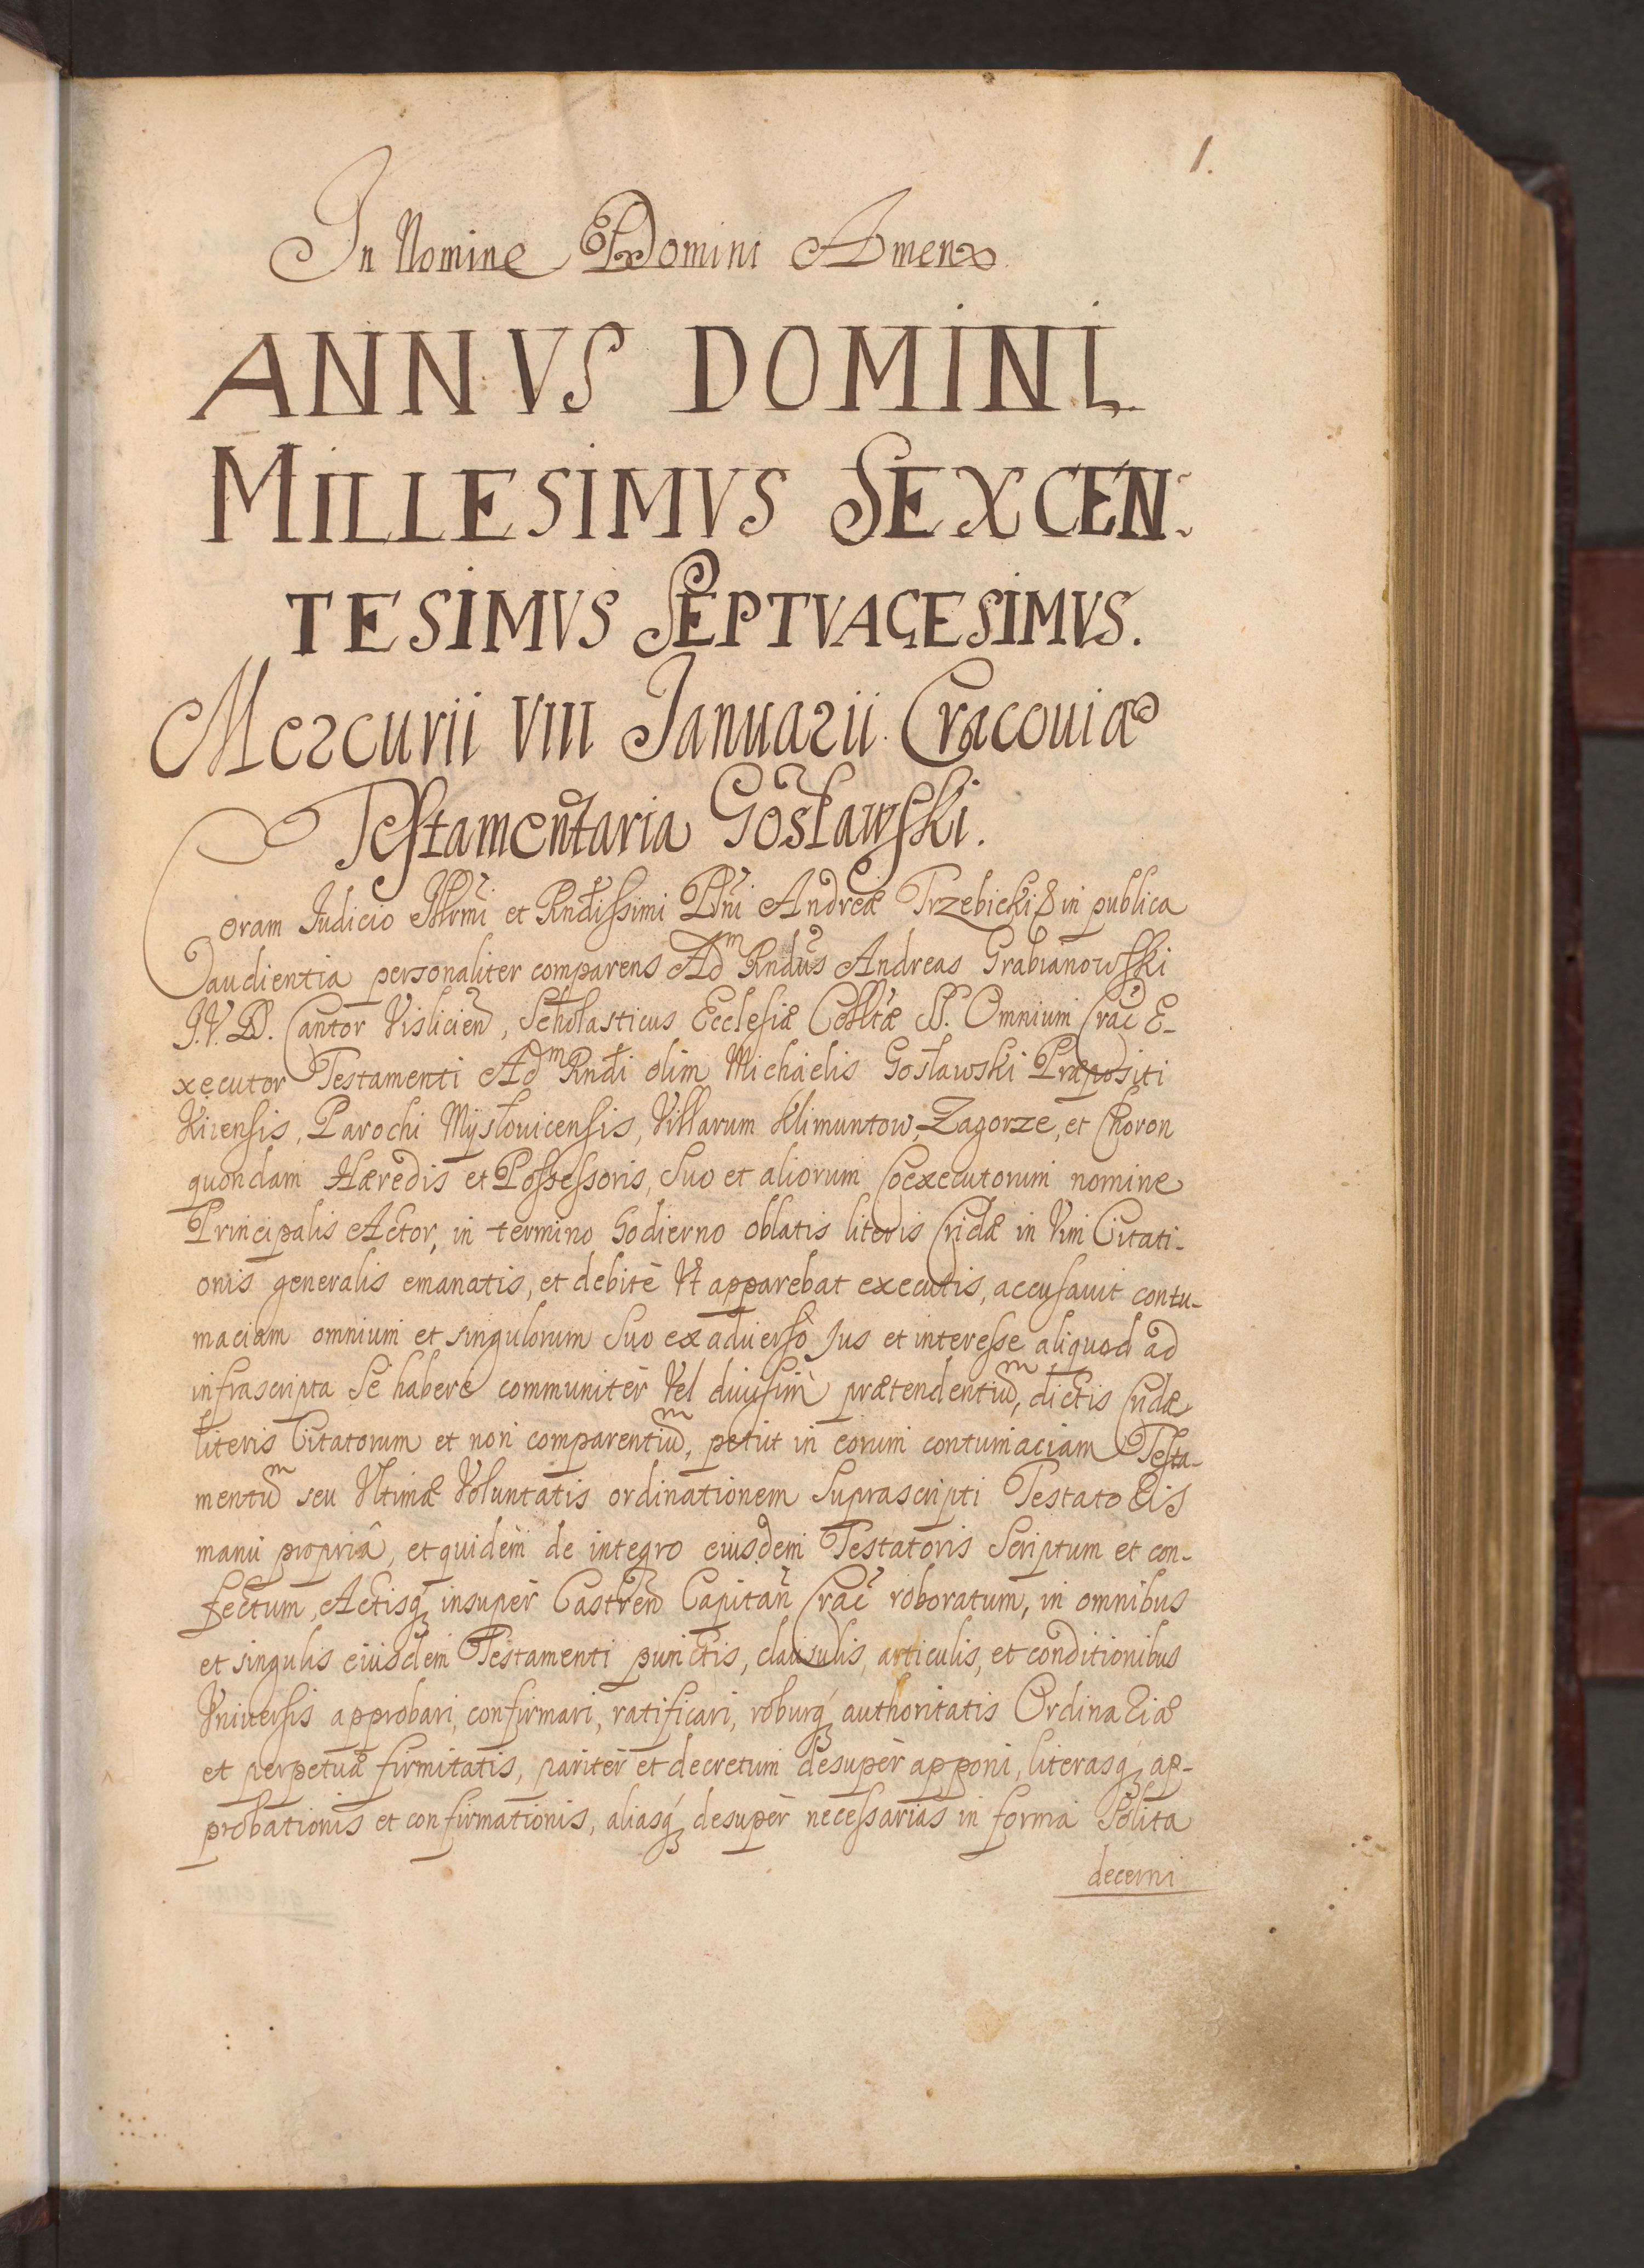 1.
In Nomine Domini Amen
ANNVS DOMINI
MILLESIMVS SEXCEN
TESIMVS SEPTVAGESIMVS.
Mercurii VIII Januarii Cracouiæ
Testamentaria Gosławski.
Coram Judicio Illrmi et Rndissimi Dni Andreæ Trzebicki in publica
audientia personaliter comparens Adm Rndus Andreas Grabianowski
J. V. D. Cantor Vislicien, Scholasticus Ecclesiæ Colltæ SS. Omnium Crac E-
xecutor Testamenti Adm Rndi olim Michaelis Gosławski Præpositi
Parochi Mysłouicensis, Villarum Klimuntow, Zagorze, et Choron
quondam Hæredis et Possessoris, Suo et aliorum Coexecutorum nomine
Principalis Actor, in termino hodierno oblatis literis Cridæ in Vim Citati-
onis generalis emanatis, et debitè Vt apparebat executis, accusauit contu-
maciam omnium et singulorum Suo ex aduerso Jus et interesse aliquod ad
infrascripta Se habere communiter Vel diuisim prætendentium, dictis Cridæ
literis Citatorum et non comparentium, petiit in eorum contumaciam Testa-
mentum seu Vltimæ Voluntatis ordinationem Suprascripti Testatoris
manu propriâ, et quidem de integro eiusdem Testatoris Scriptum et con-
fectum, Actisq insuper Castren Capitan Crac roboratum, in omnibus
et singulis eiusdem Testamenti punctis, clausulis, articulis, et conditionibus
Vniuersis approbari, confirmari, ratificari, roburq authoritatis Ordinariæ
et perpetuæ firmitatis, pariter et decretum desuper apponi, literasq ap-
probationis et confirmationis, aliasq desuper necessarias in forma Solita
decerni